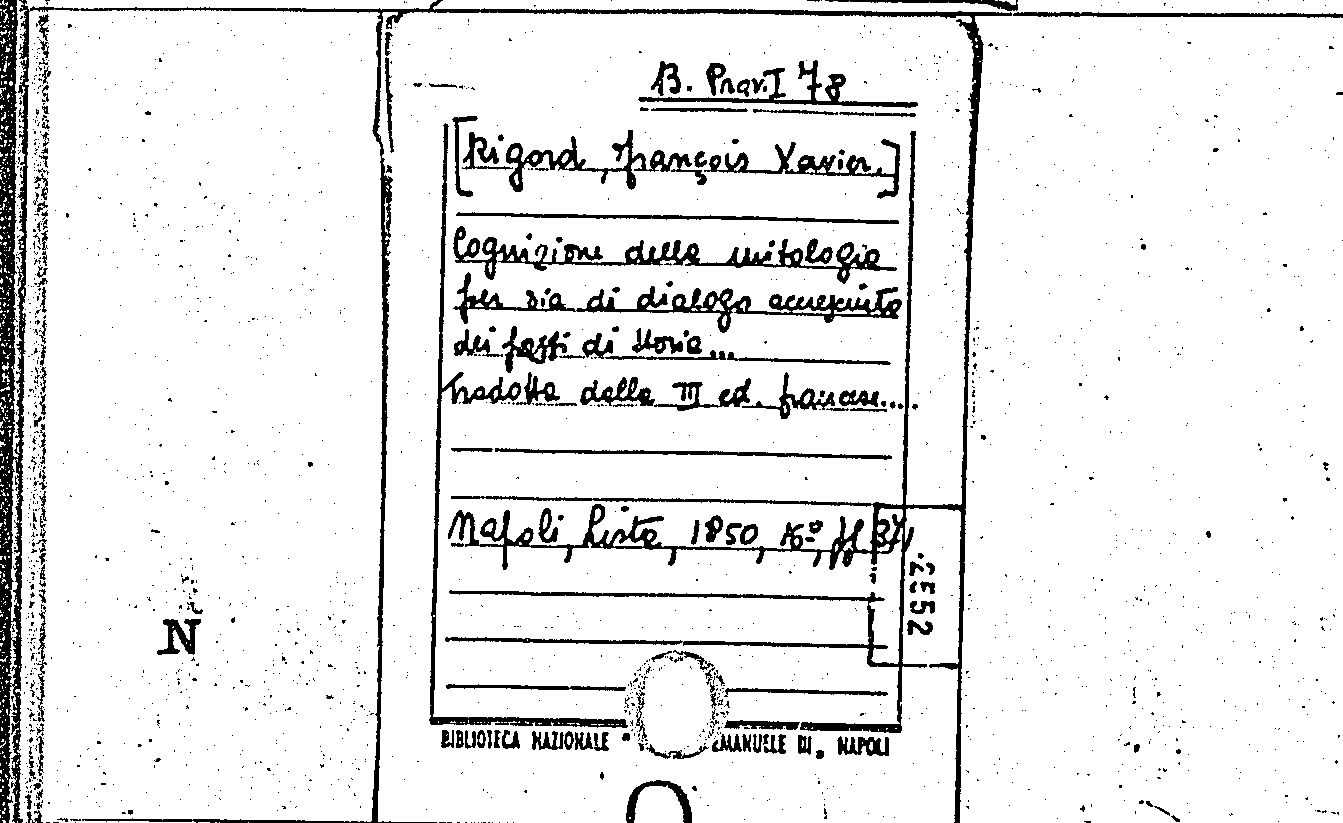 B. Prov. I 78
[Rigord, François Xavier.]
Cognizione della mitologia
per via di dialogo accresciuta
dei fatti di storia...
Tradotta dalla III ed. francese....
Napoli, Lista, 1850, 16º, pp. 371
2552
N
BIBLIOTECA NAZIONALE " EMANUELE III„ NAPOLI